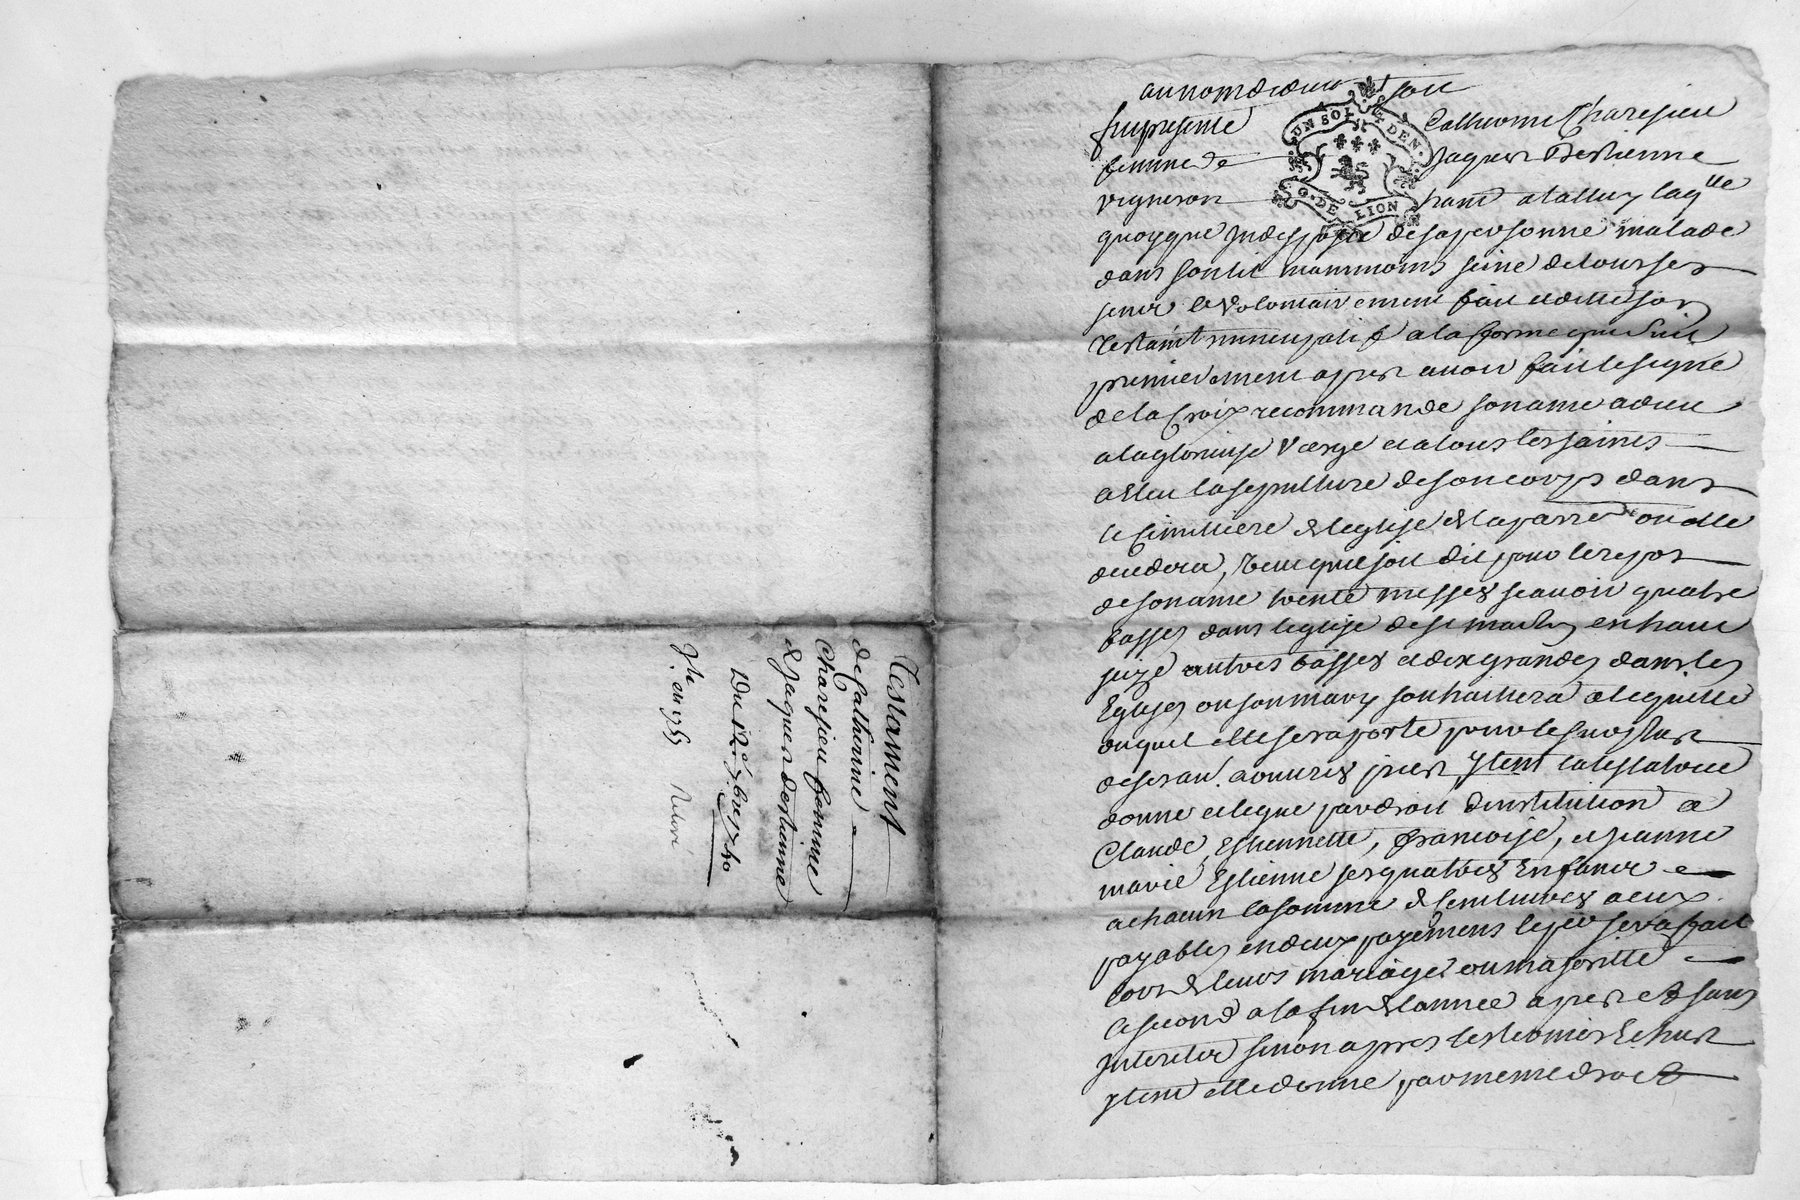 Testament
de Catherine
Charesieu femme
de Jaques destienne
Du 12e 7bre 1740
au nom de dieu soit
fut presente Catherine Charesieu
femme de Jaques Destienne
vigneron a laqlle
quoyque Indisposée de sa personne malade
dans son lit neanmoins seine de tous ses
sens a volontairement fait et dicté son
testamt nuncupatif a la forme que suit
premierement apres avoir fait le signe
de la Croix recommande son ame a dieu
a la glorieuse Vierge et a tous les saints
a Eleu la sepulture de son corps dans
le Cimettiere de leglise de la parre ou elle
decedera, veut que soit dit pour le repos
de son ame trente messes scavoir quatre
basses dans leglise de st en haut
seize autres basses et dix grandes dans les
Eglises ou son mary souhaittera a leglise
auquel elle se raporte pour le surplus
de ses aumones prieres Item la testatrice
donne et legue par droit dinstitution a
Claude, Estiennette, françoise, et Jeanne
marie Estienne ses quatres Enfants
a chacun la somme de livres a eux
payables en deux payements le per sera fait
lors de leurs mariages ou majorité
le second a la fin de lannée apres et sans
Interets sinon apres les termes Echus
Item elle donne par meme droit
UN SOL 4 DEN.
G. DE LION